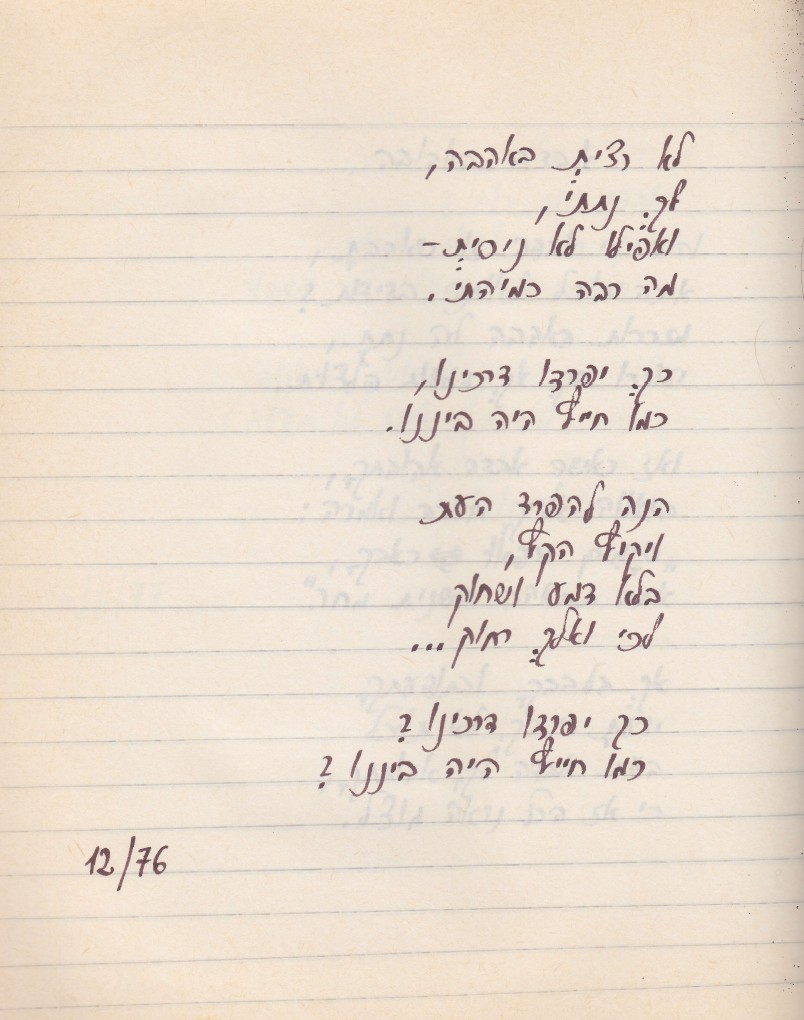 לא רצית באהבה,
אך נתתי,
ואפילו לא ניסית-
מה רבה כמיהתי.
כך יפרדו דרכינו,
כמו חייץ היה ביננו.
הנה להפרד העת
ויקיץ הקץ,
בלא דמע ושחוק
לכי ואלך רחוק...
כך יפרדו דרכינו?
כמו חייץ היה ביננו?
12/76